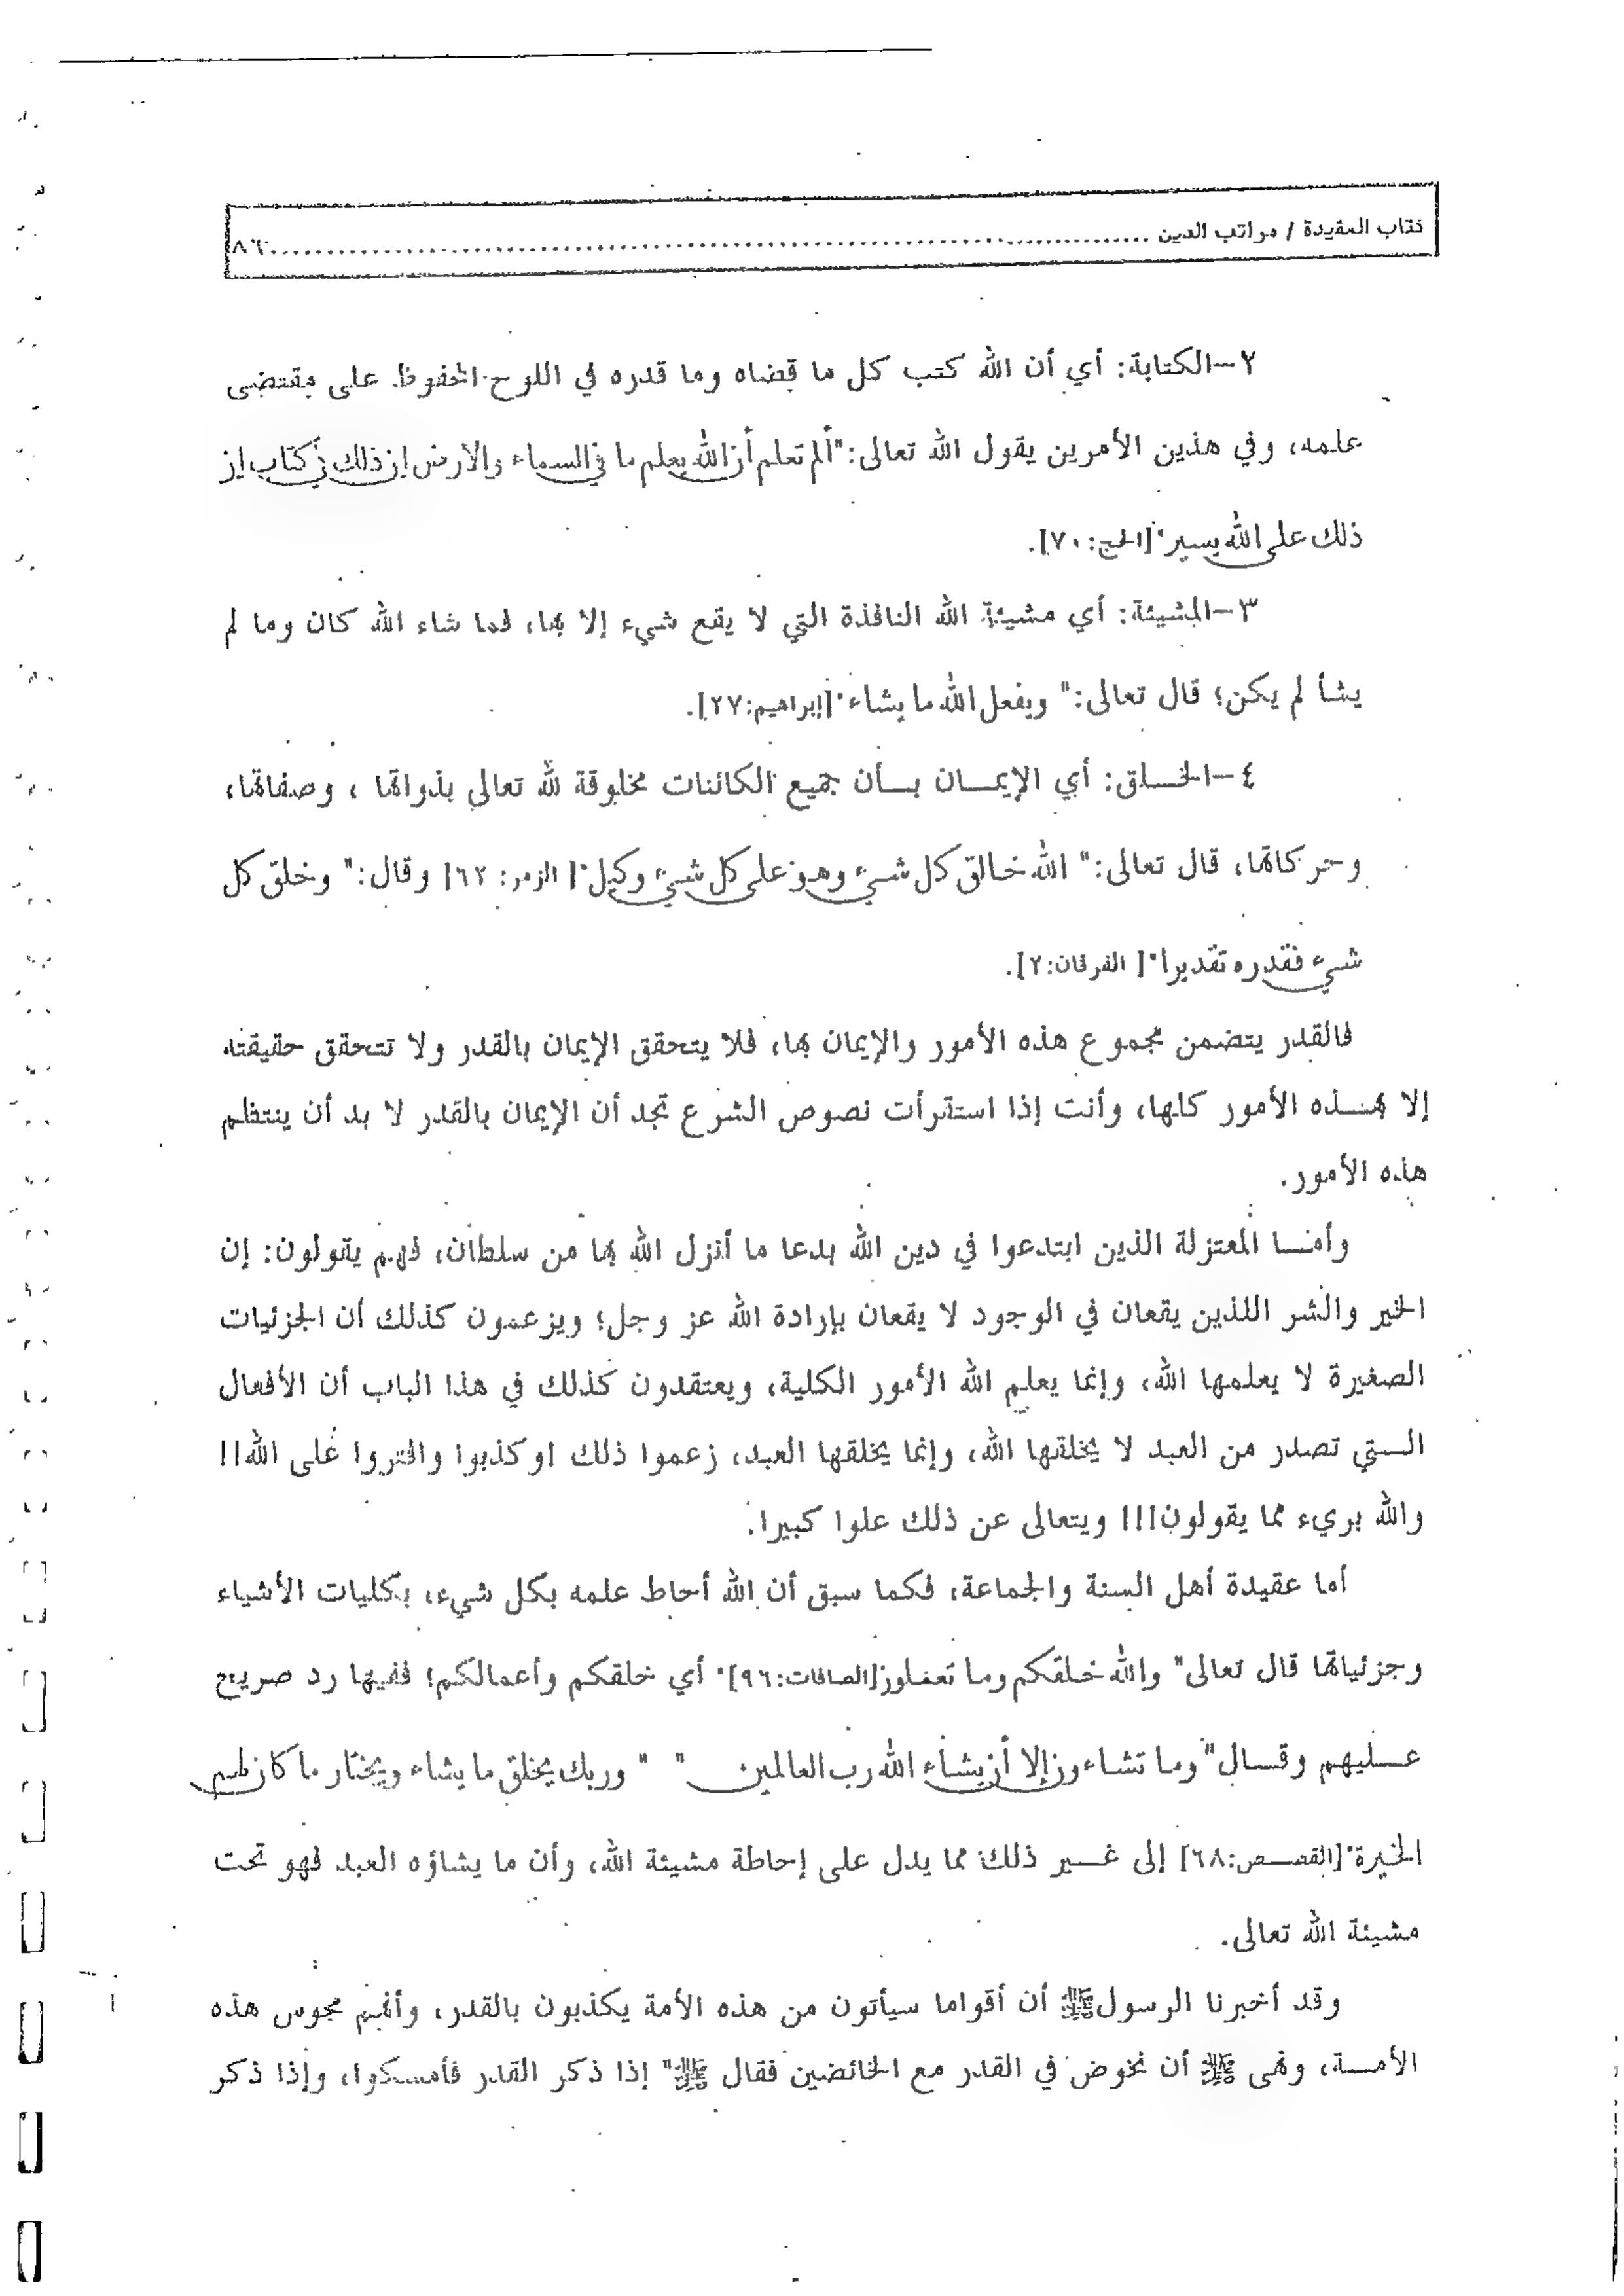 كتاب العقيدة / مراتب الدين ........................................................ ٨٦
٢-الكتابة: أي أن الله كتب كل ما قضاه وما قدره في اللوح المحفوظ على مقتضى
علمه، وفي هذين الأمرين يقول الله تعالى:"ألم تعلم أن الله يعلم ما في السماء والأرض إن ذلك في كتاب إن
ذلك على الله يسير"[الحج:٧٠].
٣-المشيئة: أي مشيئة الله النافذة التي لا يقع شيء إلا بها، فما شاء الله كان وما لم
يشأ لم يكن؛ قال تعالى:" ويفعل الله ما يشاء"[إبراهيم:٢٧].
٤-الخلق: أي الإيمان بأن جميع الكائنات مخلوقة لله تعالى بذواتها ، وصفاتها،
وحركاتها، قال تعالى:" الله خالق كل شيء وهو على كل شيء وكيل"[ الزمر: ٦٢] وقال:" وخلق كل
شيء فقدره تقديرا"[ الفرقان:٢].
فالقدر يتضمن مجموع هذه الأمور والإيمان بها، فلا يتحقق الإيمان بالقدر ولا تتحقق حقيقته
إلا بهذه الأمور كلها، وأنت إذا استقرأت نصوص الشرع تجد أن الإيمان بالقدر لا بد أن ينتظم
هذه الأمور.
وأما المعتزلة الذين ابتدعوا في دين الله بدعا ما أنزل الله بها من سلطان، فهم يقولون: إن
الخير والشر اللذين يقعان في الوجود لا يقعان بإرادة الله عز وجل؛ ويزعمون كذلك أن الجزئيات
الصغيرة لا يعلمها الله، وإنما يعلم الله الأمور الكلية، ويعتقدون كذلك في هذا الباب أن الأفعال
التي تصدر من العبد لا يخلقها الله، وإنما يخلقها العبد، زعموا ذلك او كذبوا وافتروا على الله!!
والله بريء مما يقولون!!! ويتعالى عن ذلك علوا كبيرا.
أما عقيدة أهل السنة والجماعة، فكما سبق أن الله أحاط علمه بكل شيء، بكليات الأشياء
وجزئياتها قال تعالى" والله خلقكم وما تعملون[الصافات:٩٦]" أي خلقكم وأعمالكم؛ ففيها رد صريح
عليهم وقال" وما تشاءون إلا أن يشاء الله رب العالمين " " وربك يخلق ما يشاء ويختار ما كان لهم
الخيرة"[القصص:٦٨] إلى غير ذلك مما يدل على إحاطة مشيئة الله، وأن ما يشاؤه العبد فهو تحت
مشيئة الله تعالى.
وقد أخبرنا الرسول ﷺ أن أقواما سيأتون من هذه الأمة يكذبون بالقدر، وأنهم مجوس هذه
الأمة، ونهى ﷺ أن نخوض في القدر مع الخائضين فقال ﷺ" إذا ذكر القدر فأمسكوا، وإذا ذكر